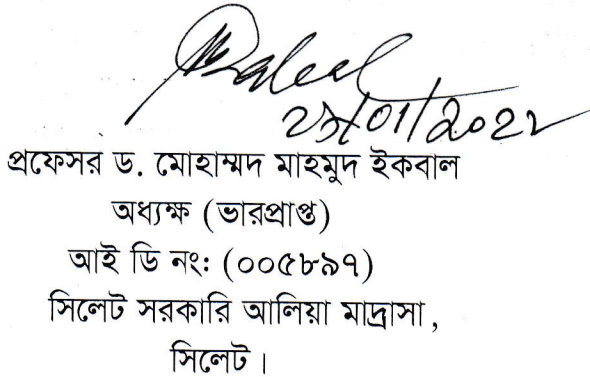 /01/2022
প্রফেসর ড. মোহাম্মদ মাহমুদ ইকবাল
অধ্যক্ষ (ভারপ্রাপ্ত)
আই ডি নং: (০০৫৮৯৭)
সিলেট সরকারি আলিয়া মাদ্রাসা,
সিলেট।